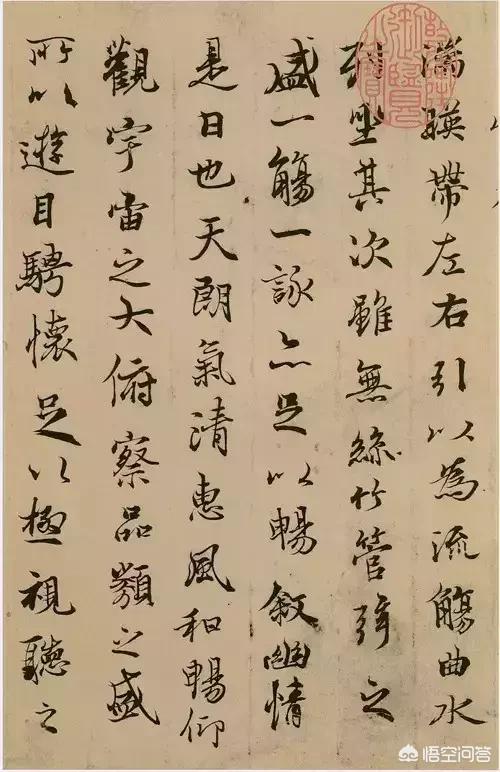 湍暎帶左右引以為流觴曲水
列坐其次雖無絲竹管弦之
盛一觴一詠亦足以暢叙幽情
是日也天朗氣清惠風和暢仰
觀宇宙之大俯察品類之盛
所以遊目騁懷足以極視聽之
悟空问答